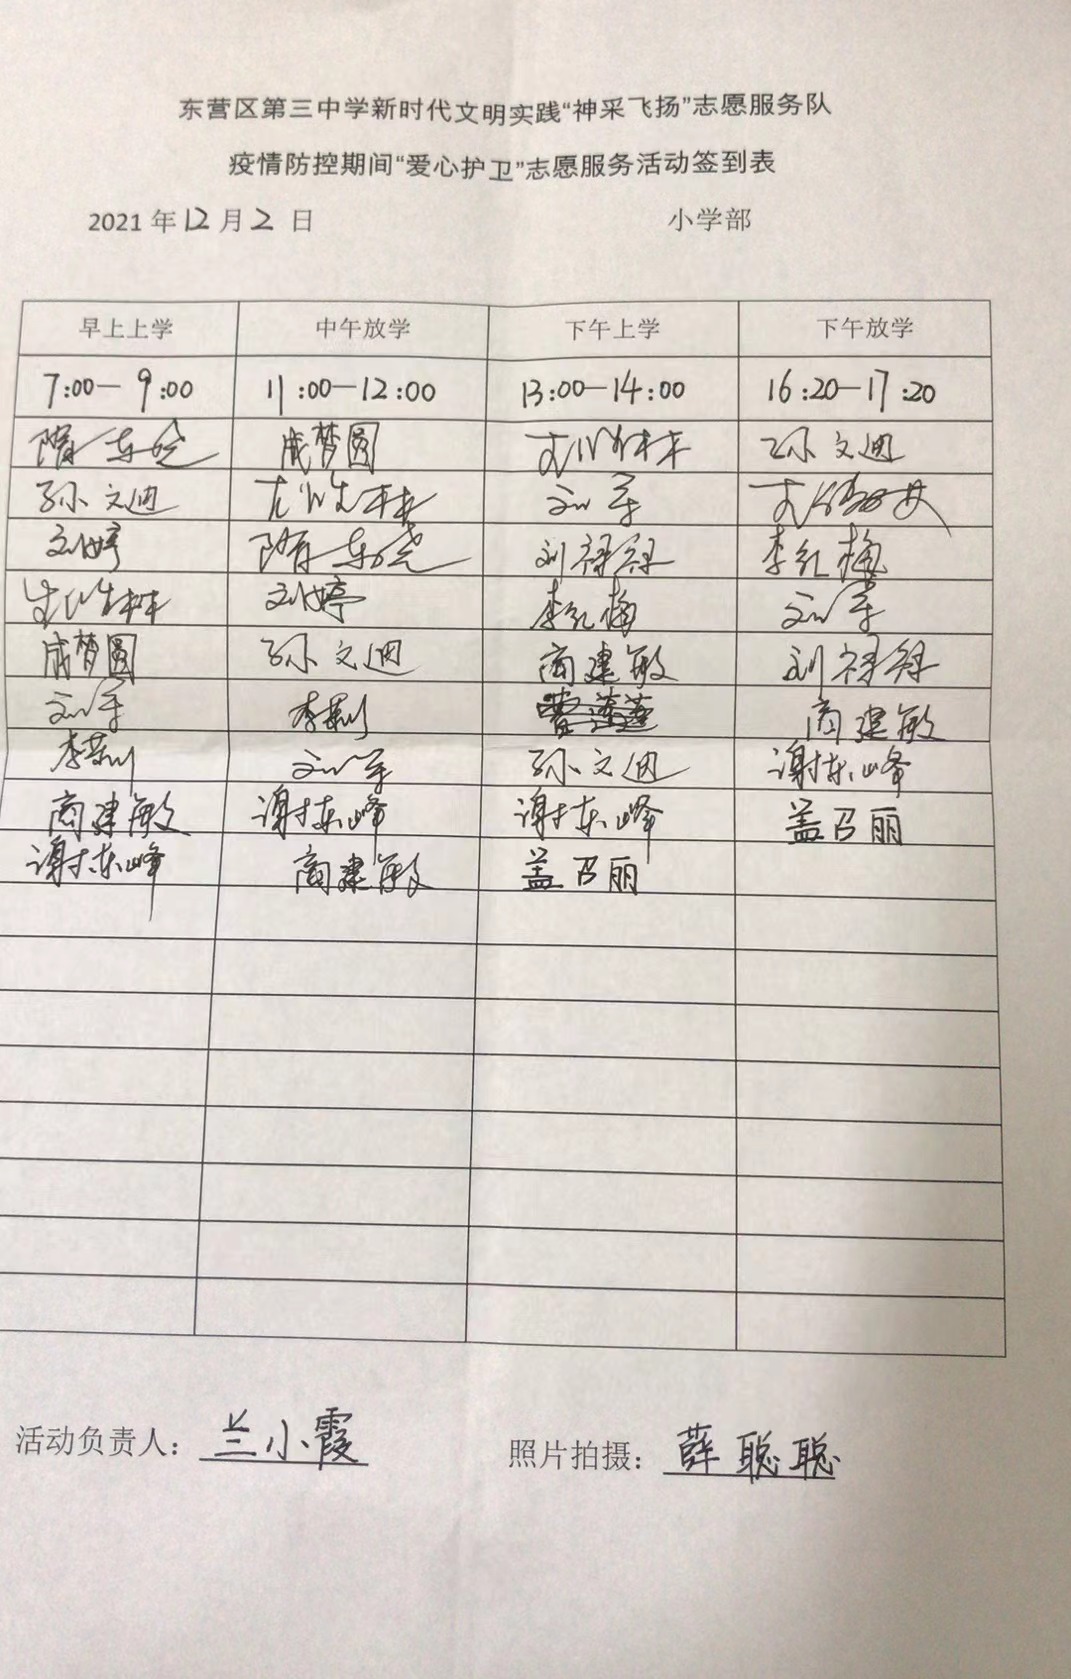 东营区第三中学新时代文明实践“神采飞扬”志愿服务队
疫情防控期间“爱心护卫”志愿服务活动签到表
2021 年 12 月 2 日 小学部
早上上学 中午放学 下午上学 下午放学
7:00—9:00 11:00—12:00 13:00—14:00 16:20—17:20
隋东晓 成梦圆 孙文迪
孙文迪 刘军
刘婷 隋东晓 刘禄禄 李红梅
刘婷 李红梅 刘军
成梦圆 孙文迪 商建敏 刘禄禄
刘军 商建敏
刘军 孙文迪 谢东峰
商建敏 谢东峰 谢东峰 盖召丽
谢东峰 商建敏 盖召丽
活动负责人：兰小霞 照片拍摄：薛聪聪